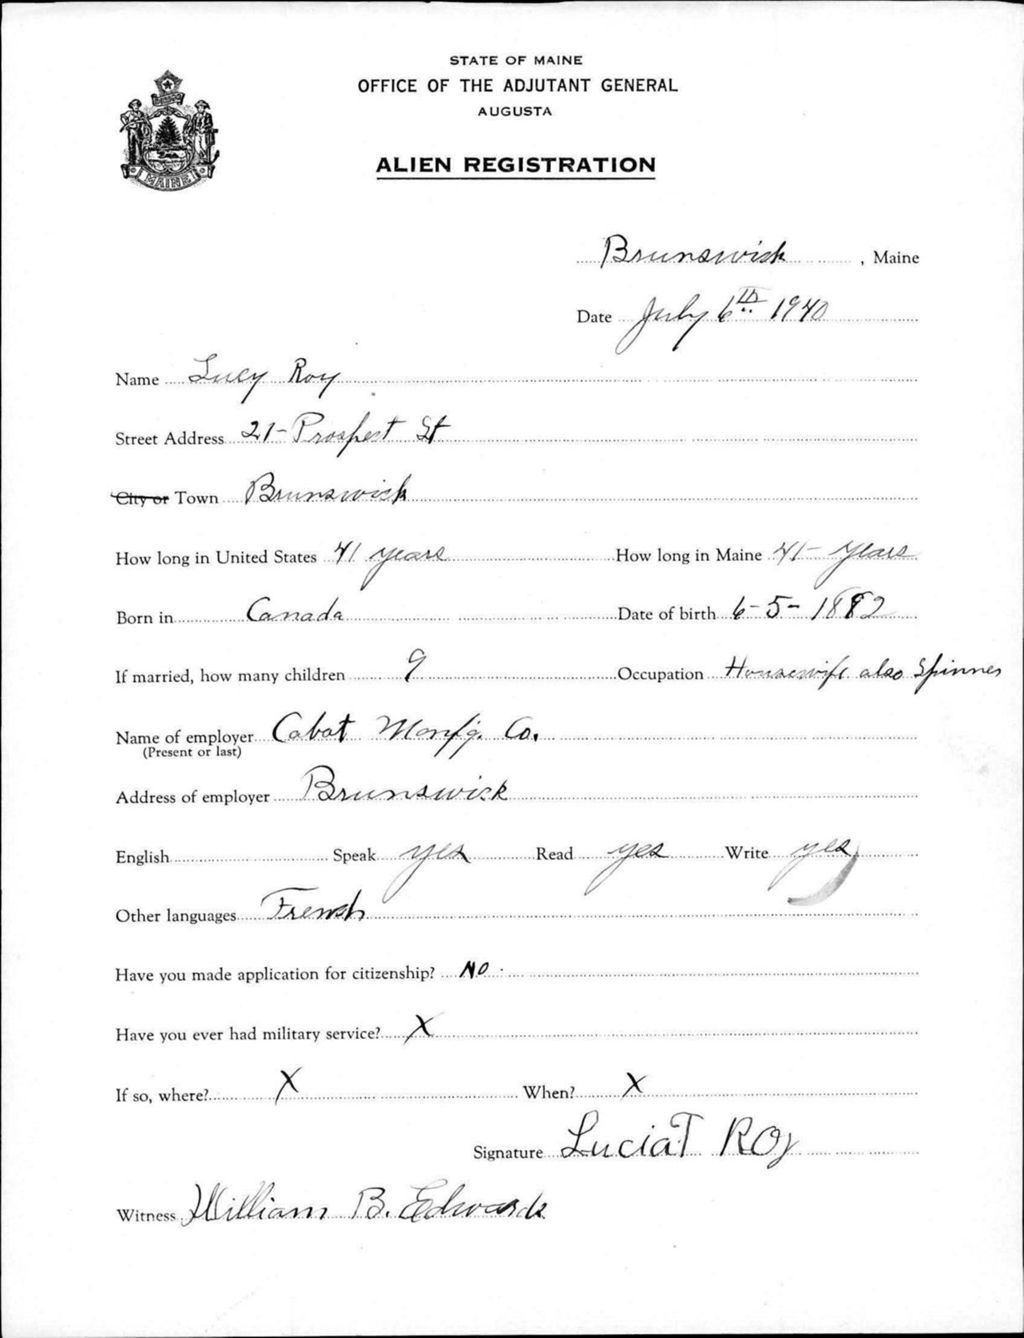 STATE OF MAINE
OFFICE OF THE ADJUTANT GENERAL
AUGUSTA
ALIEN REGISTRATION
MAINE
Brunswick, Maine
Date July 6th 1940
Name Lucy Roy
Street Address 21- Prospect St
City or Town Brunswick
How long in United States 41 years How long in Maine 41- years
Born in Canada Date of birth 6-5-1882
If married, how many children 9 Occupation Housewife also Spinner
Name of employer Cabot Manfg. Co.
(Present or last)
Address of employer Brunswick
English Speak yes Read yes Write yes
Other languages French
Have you made application for citizenship? NO
Have you ever had military service? X
If so, where? X When? X
Signature Lucia T Roy
Witness William B. Edwards